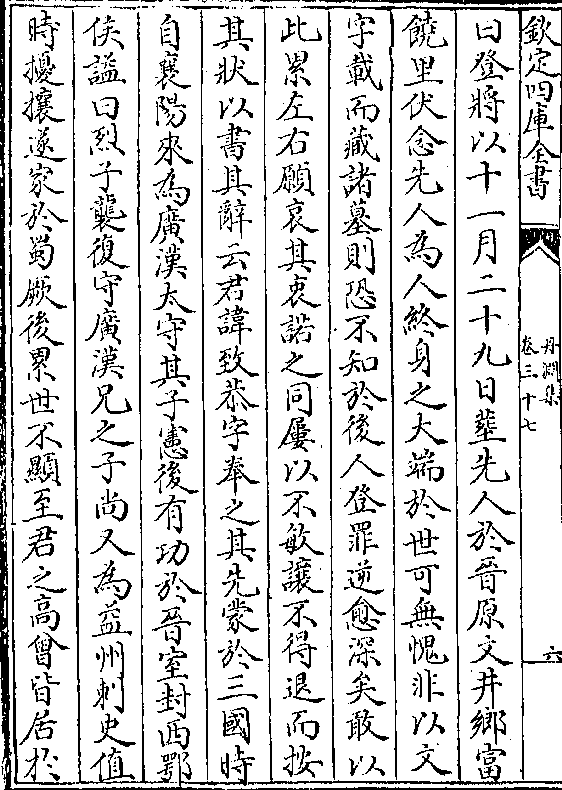 欽定四庫全書
丹淵集
卷三十七
六
曰登將以十一月二十九日葬先人於晉原文井鄉富
饒里伏念先人為人終身之大端於世可無愧非以文
字載而藏諸墓則恐不知於後人登罪逆愈深矣敢以
此累左右願哀其衷諾之同屢以不敏讓不得退而按
其狀以書其辭云君諱致恭字奉之其先蒙於三國時
自襄陽來為廣漢太守其子憲後有功於晉室封西鄂
侯諡曰烈子襲復守廣漢兄之子尚又為益州刺史值
時擾攘遂家於蜀厥後累世不顯至君之高曾皆居於